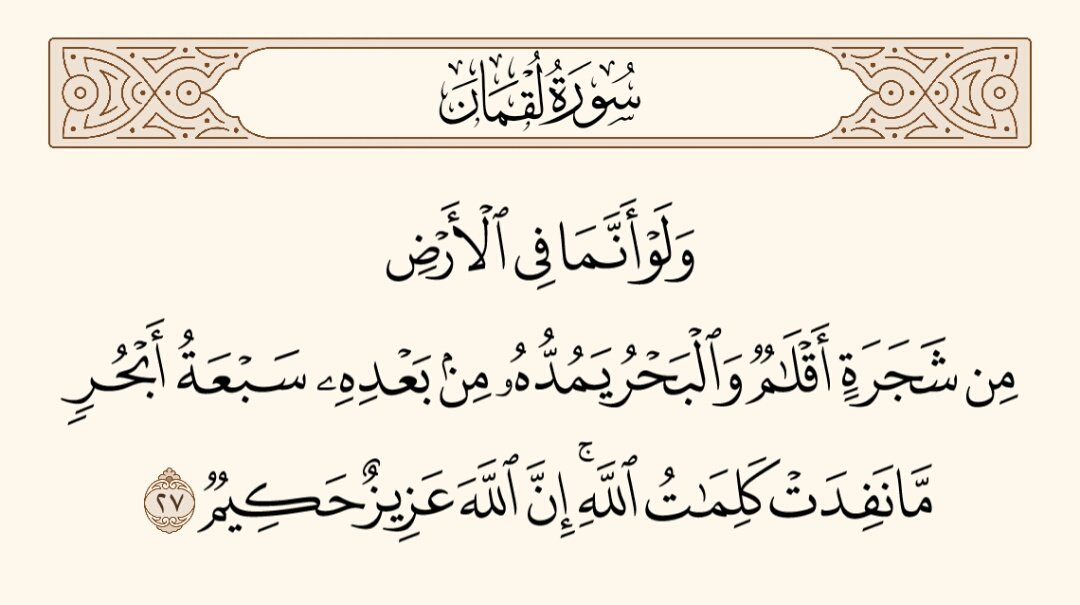 سُورَةُ لُقْمَانَ
وَلَوْ أَنَّمَا فِي ٱلْأَرْضِ
مِن شَجَرَةٍ أَقْلَٰمٌ وَٱلْبَحْرُ يَمُدُّهُۥ مِنۢ بَعْدِهِۦ سَبْعَةُ أَبْحُرٍ
مَّا نَفِدَتْ كَلِمَٰتُ ٱللَّهِ ۚ إِنَّ ٱللَّهَ عَزِيزٌ حَكِيمٌ ٢٧